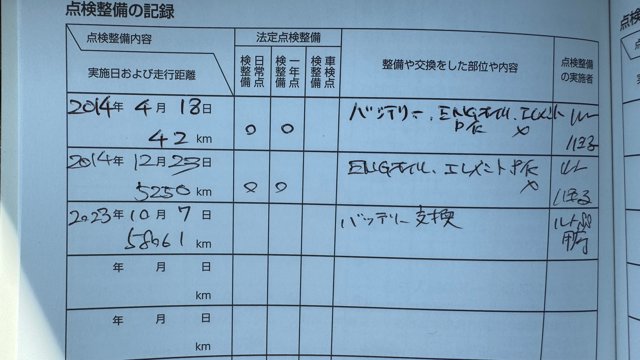 点検整備の記録
点検整備内容
実施日および走行距離
法定点検整備
日常点検整備
一年点検整備
車検点検整備
整備や交換をした部位や内容
点検整備の実施者
2014年 4月 18日
42 km
○ ○
バッテリー、ENGオイル、エレメント
2014年 12月 25日
5250 km
○ ○
ENGオイル、エレメント
2023年 10月 7日
58961 km
バッテリー交換
年 月 日
km
年 月 日
km
点検